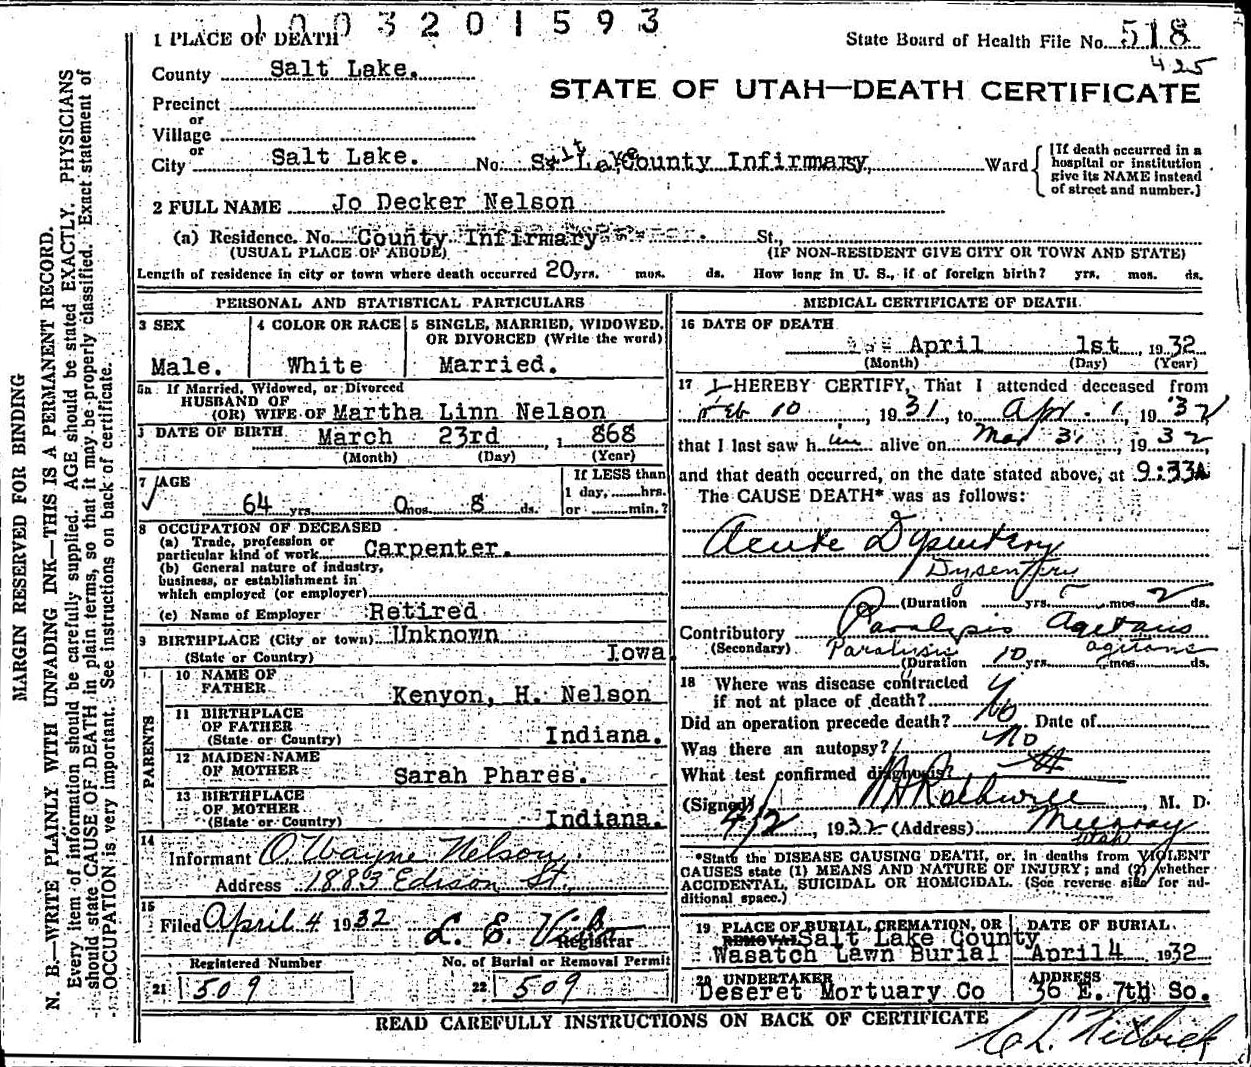 1003201593
1 PLACE OF DEATH
State Board of Health File No. 518
425
County Salt Lake.
STATE OF UTAH—DEATH CERTIFICATE
Precinct
or
Village
or
City Salt Lake. No. Salt Lake County Infirmary, Ward
[If death occurred in a hospital or institution give its NAME instead of street and number.]
2 FULL NAME Jo Decker Nelson
(a) Residence. No. County Infirmary St.,
(USUAL PLACE OF ABODE) (IF NON-RESIDENT GIVE CITY OR TOWN AND STATE)
Length of residence in city or town where death occurred 20 yrs. mos. ds. How long in U. S., if of foreign birth? yrs. mos. ds.
PERSONAL AND STATISTICAL PARTICULARS
3 SEX Male.
4 COLOR OR RACE White
5 SINGLE, MARRIED, WIDOWED, OR DIVORCED (Write the word) Married.
5a If Married, Widowed, or Divorced
HUSBAND OF
(OR) WIFE OF Martha Linn Nelson
DATE OF BIRTH March 23rd, 1868
(Month) (Day) (Year)
7 AGE 64 yrs. 0 mos. 8 ds.
If LESS than
1 day, hrs.
or min.?
8 OCCUPATION OF DECEASED
(a) Trade, profession or
particular kind of work Carpenter.
(b) General nature of industry,
business, or establishment in
which employed (or employer)
(c) Name of Employer Retired
9 BIRTHPLACE (City or town) Unknown
(State or Country) Iowa
PARENTS
10 NAME OF
FATHER Kenyon, H. Nelson
11 BIRTHPLACE
OF FATHER
(State or Country) Indiana.
12 MAIDEN NAME
OF MOTHER Sarah Phares.
13 BIRTHPLACE
OF MOTHER
(State or Country) Indiana.
14
Informant O. Wayne Nelson,
Address 1883 Edison St.,
15
Filed April 4 1932 L. E. Registrar
Registered Number No. of Burial or Removal Permit
21 509 22 509
MEDICAL CERTIFICATE OF DEATH
16 DATE OF DEATH
April 1st, 1932
(Month) (Day) (Year)
17 I HEREBY CERTIFY, That I attended deceased from
Feb 10, 1931, to Apr. 1, 1932
that I last saw him alive on Mar 31, 1932
and that death occurred, on the date stated above, at 9:33A
The CAUSE DEATH* was as follows:
Acute Dysentery
Dysentery
(Duration yrs. mos. 2 ds.
Contributory Paralysis Agitans
(Secondary) Paralysis agitans
(Duration 10 yrs. mos. ds.
18 Where was disease contracted
if not at place of death?
Did an operation precede death? No Date of
Was there an autopsy? No
What test confirmed diagnosis?
(Signed) , M. D.
4/2, 1932 (Address) Murray
Utah
*State the DISEASE CAUSING DEATH, or, in deaths from VIOLENT
CAUSES state (1) MEANS AND NATURE OF INJURY; and (2) whether
ACCIDENTAL, SUICIDAL OR HOMICIDAL. (See reverse side for ad-
ditional space.)
19 PLACE OF BURIAL, CREMATION, OR
REMOVAL Salt Lake County
Wasatch Lawn Burial
DATE OF BURIAL
April 4 1932
20 UNDERTAKER
Deseret Mortuary Co
ADDRESS
36 E. 7th So.
READ CAREFULLY INSTRUCTIONS ON BACK OF CERTIFICATE
MARGIN RESERVED FOR BINDING
N. B.—WRITE PLAINLY, WITH UNFADING INK—THIS IS A PERMANENT RECORD.
Every item of information should be carefully supplied. AGE should be stated EXACTLY. PHYSICIANS
should state CAUSE OF DEATH in plain terms, so that it may be properly classified. Exact statement of
OCCUPATION is very important. See instructions on back of certificate.